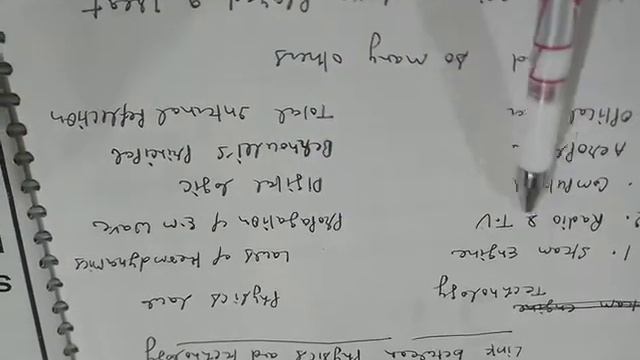 Link between Physics and technology
Technology Physics law
1. Steam Engine Laws of thermodynamics
2. Radio & T.V Propagation of E.m wave
Digital logic
Bernouli's Principel
Optical Total Internal Reflection
so many others
Played a great